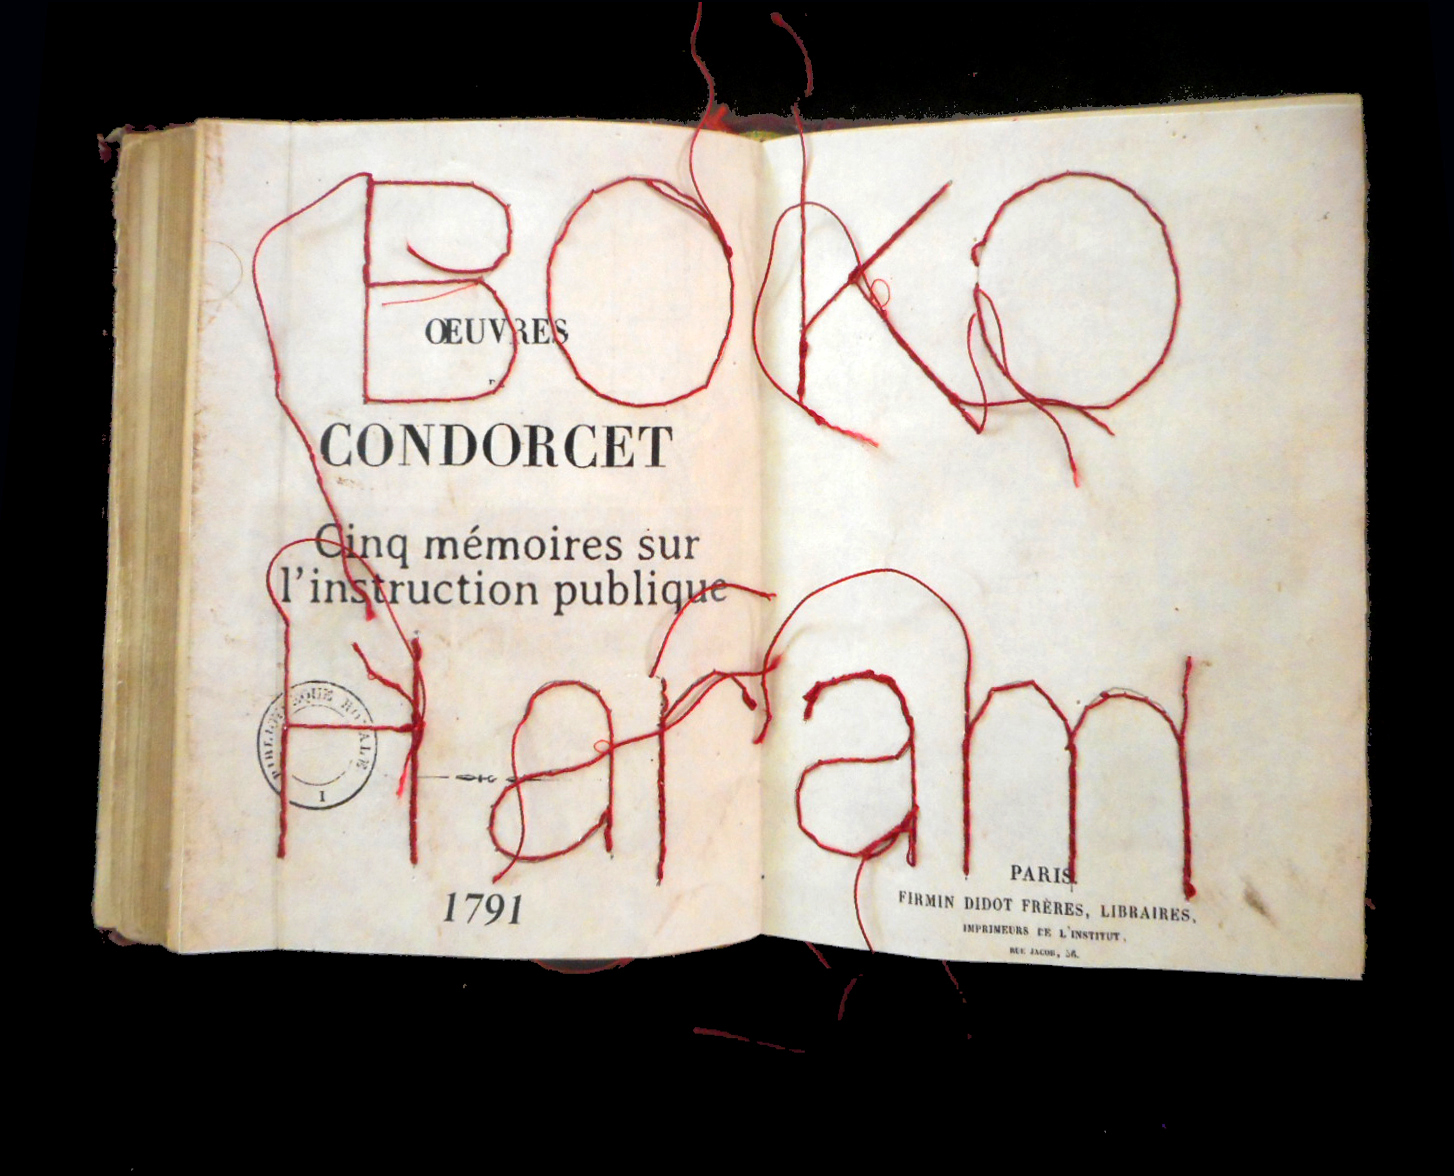 BOKO
ŒUVRES
CONDORCET
Cinq mémoires sur
l'instruction publique
Haram
BIBLIOTHÈQUE ROYALE
I
1791
PARIS.
FIRMIN DIDOT FRÈRES, LIBRAIRES,
IMPRIMEURS DE L'INSTITUT,
RUE JACOB, 56.